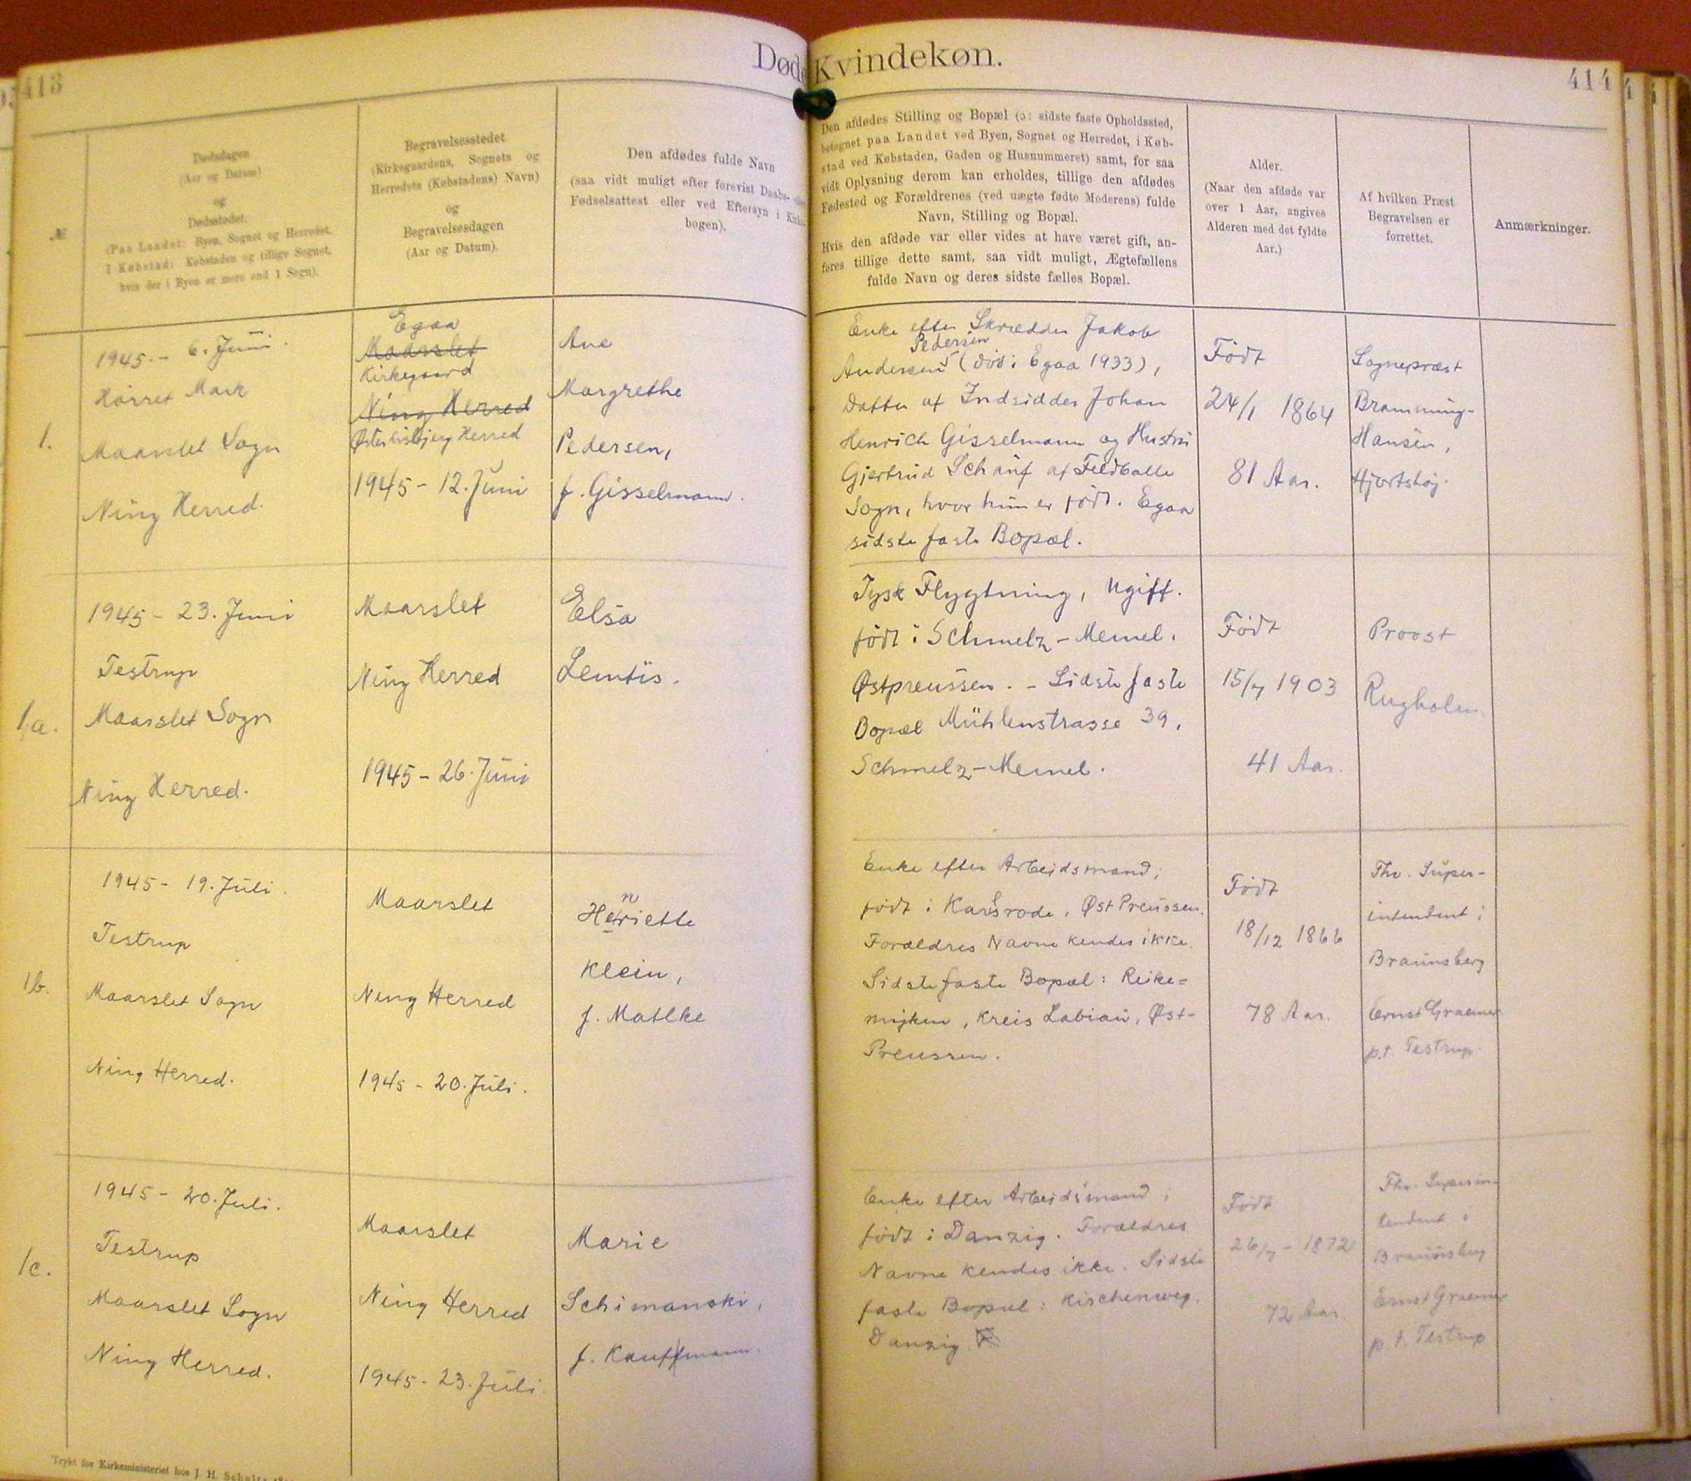 413
Døde Kvindekøn.
414
№
Dødsdagen
(Aar og Datum)
og
Dødsstedet.
(Paa Landet: Byen, Sognet og Herredet,
I Købstad: Købstaden og tillige Sognet,
hvis der i Byen er mere end 1 Sogn).
Begravelsesstedet
(Kirkegaardens, Sognets og
Herredets (Købstadens) Navn)
og
Begravelsesdagen
(Aar og Datum).
Den afdødes fulde Navn
(saa vidt muligt efter forevist Daabs- eller
Fødselsattest eller ved Eftersyn i Kirke-
bogen).
Den afdødes Stilling og Bopæl (ɔ: sidste faste Opholdssted,
betegnet paa Landet ved Byen, Sognet og Herredet, i Køb-
stad ved Købstaden, Gaden og Husnummeret) samt, for saa
vidt Oplysning derom kan erholdes, tillige den afdødes
Fødested og Forældrenes (ved uægte fødte Moderens) fulde
Navn, Stilling og Bopæl.
Hvis den afdøde var eller vides at have været gift, an-
føres tillige dette samt, saa vidt muligt, Ægtefællens
fulde Navn og deres sidste fælles Bopæl.
Alder.
(Naar den afdøde var
over 1 Aar, angives
Alderen med det fyldte
Aar.)
Af hvilken Præst
Begravelsen er
forrettet.
Anmærkninger.
1.
1945.- 6. Juni.
Hørret Mark
Maarslet Sogn
Ning Herred.
Egaa
Maarslet
Kirkegaard
Ning Herred
Øster Lisbjerg Herred
1945 - 12. Juni
Ane
Margrethe
Pedersen,
f. Gisselmann.
Enke efter Skrædder Jakob
Pedersen
Andersen (død i Egaa 1933),
Datter af Indsidder Johan
Henrich Gisselmann og Hustru
Gjertrud Schauf af Feldballe
Sogn, hvor hun er født. Egaa
sidste faste Bopæl.
Født
24/1 1864
81 Aar.
Sognepræst
Bramming-
Hansen,
Hjortshøj.
1a.
1945 - 23. Juni
Testrup
Maarslet Sogn
Ning Herred.
Maarslet
Ning Herred
1945 - 26. Juni
Elsa
Lentis.
Tysk Flygtning, Ugift.
født i Schmelz-Memel.
Østpreussen. - Sidste faste
Bopæl Mühlenstrasse 39,
Schmelz-Memel.
Født
15/7 1903
41 Aar.
Provst
Rugholm.
1b.
1945 - 19. Juli.
Testrup
Maarslet Sogn
Ning Herred.
Maarslet
Ning Herred
1945 - 20. Juli.
n
Heriette
Klein,
f. Matlke
Enke efter Arbejdsmand;
født i Karlsrode, Øst Preussen.
Forældres Navne kendes ikke.
Sidste faste Bopæl: Reike=
, Kreis Labiau, Øst-
Preussen.
Født
18/12 1866
78 Aar.
Fhv. Super-
intendent i
Braunsberg
Ernst Graemer
p.t. Testrup.
1c.
1945 - 20. Juli.
Testrup
Maarslet Sogn
Ning Herred.
Maarslet
Ning Herred
1945 - 23. Juli
Marie
Schimanski,
f. Kauffmann.
Enke efter Arbejdsmand;
født i Danzig. Forældres
Navne kendes ikke. Sidste
faste Bopæl: Kischenweg.
Danzig
Født
26/7 - 1872
72 Aar.
Fhv. Superin-
tendent i
Braunsberg
Ernst Graemer
p.t. Testrup
Trykt for Kirkeministeriet hos J. H. Schultz